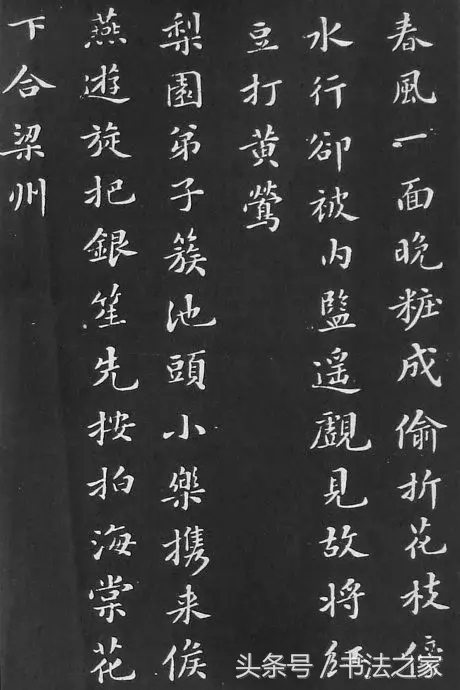 春風一面晚粧成偷折花枝傍
水行卻被内監遥覷見故將紅
豆打黃鶯
梨園弟子簇池頭小樂携来俟
燕遊旋把銀笙先按拍海棠花
下合梁州
头条号 / 书法之家